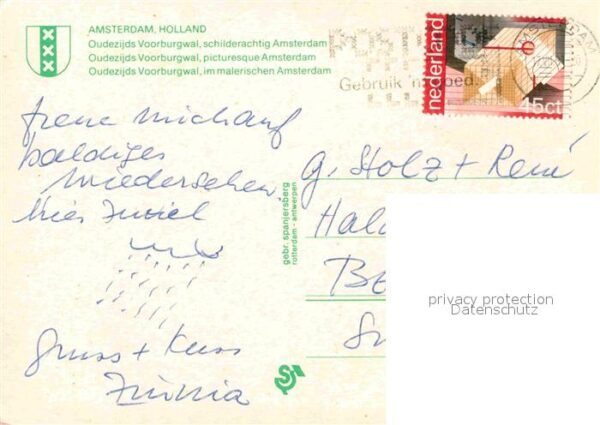 AMSTERDAM, HOLLAND
Oudezijds Voorburgwal, schilderachtig Amsterdam
Oudezijds Voorburgwal, picturesque Amsterdam
Oudezijds Voorburgwal, im malerischen Amsterdam
nederland
45ct
Gebruik
freue mich auf
baldiges
wiedersehen.
hier
Gruss + Kuss
gebr. spanjersberg
rotterdam - antwerpen
G. Stolz + René
Hal
Be
privacy protection
Datenschutz